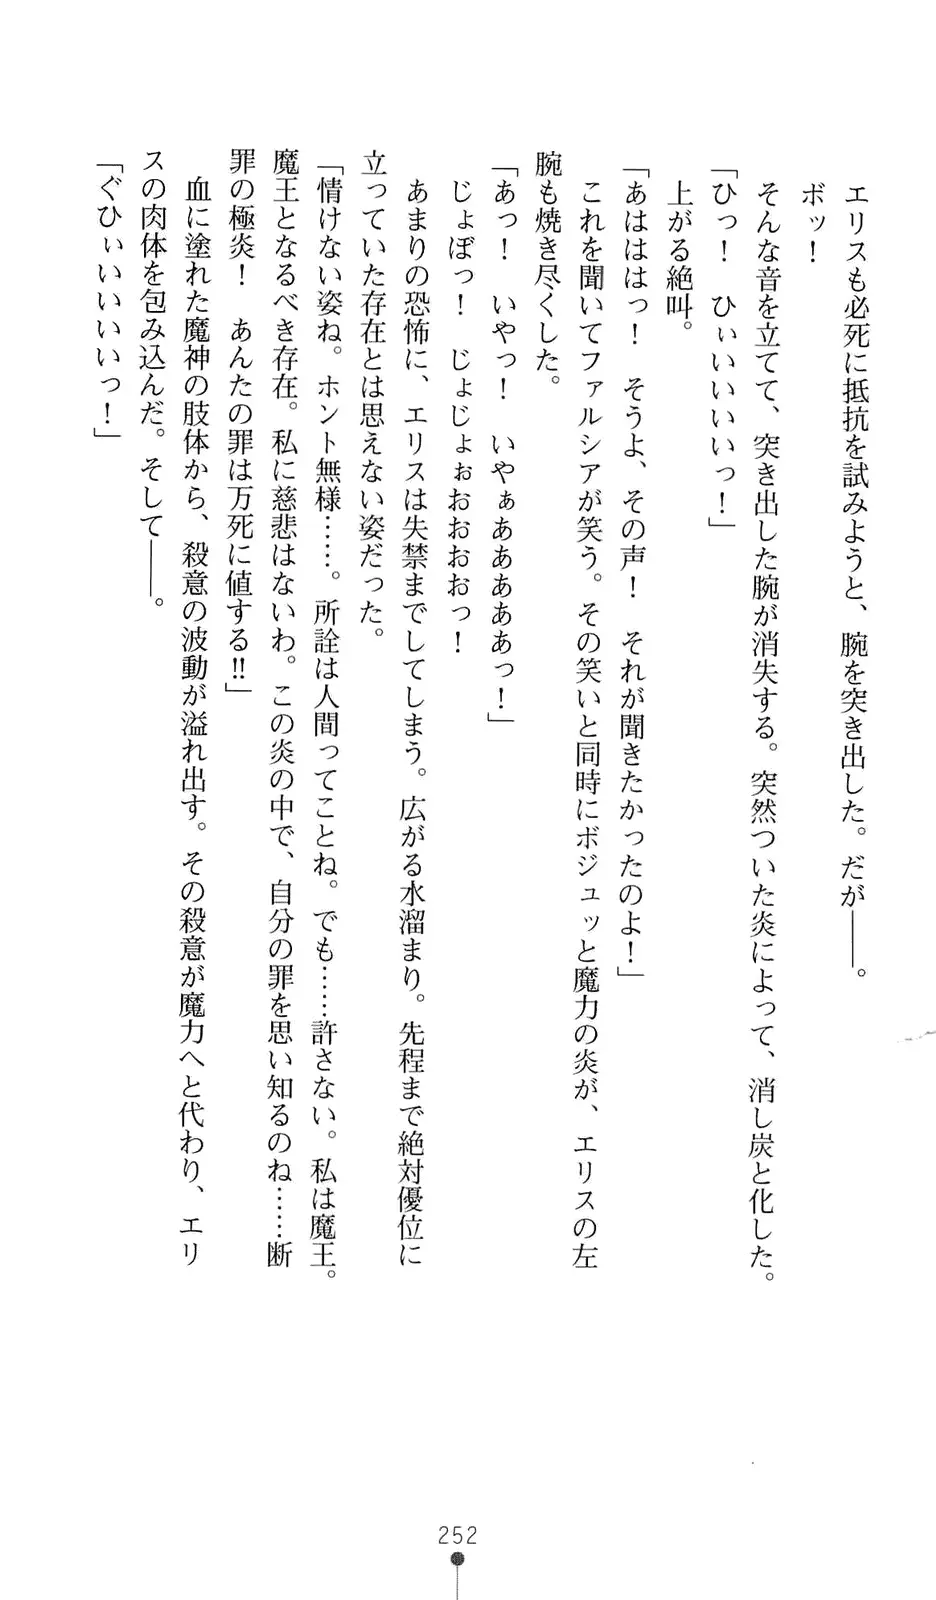 エリスも必死に抵抗を試みようと、腕を突き出した。だが――。
　ボッ！
　そんな音を立てて、突き出した腕が消失する。突然ついた炎によって、消し炭と化した。
「ひっ！　ひぃいいいいっ！」
　上がる絶叫。
「あはははっ！　そうよ、その声！　それが聞きたかったのよ！」
　これを聞いてファルシアが笑う。その笑いと同時にボジュッと魔力の炎が、エリスの左
腕も焼き尽くした。
「あっ！　いやっ！　いやぁああああっ！」
　じょぼっ！　じょじょぉおおおおっ！
　あまりの恐怖に、エリスは失禁までしてしまう。広がる水溜まり。先程まで絶対優位に
立っていた存在とは思えない姿だった。
「情けない姿ね。ホント無様……。所詮は人間ってことね。でも……許さない。私は魔王。
魔王となるべき存在。私に慈悲はないわ。この炎の中で、自分の罪を思い知るのね……断
罪の極炎！　あんたの罪は万死に値する!!」
　血に塗れた魔神の肢体から、殺意の波動が溢れ出す。その殺意が魔力へと代わり、エリ
スの肉体を包み込んだ。そして――。
「ぐひぃいいいいっ！」
252